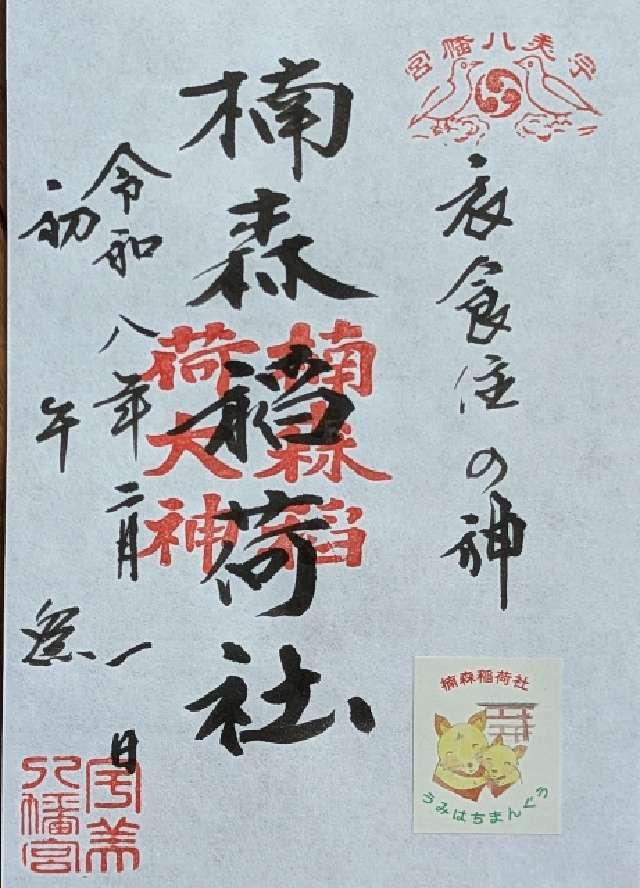 宇美八幡宮
衣食住の神
楠森稲荷社
楠森稲
荷大神
令和八年二月一日
初午
祭
宇美
八幡宮
楠森稲荷社
うみはちまんぐう